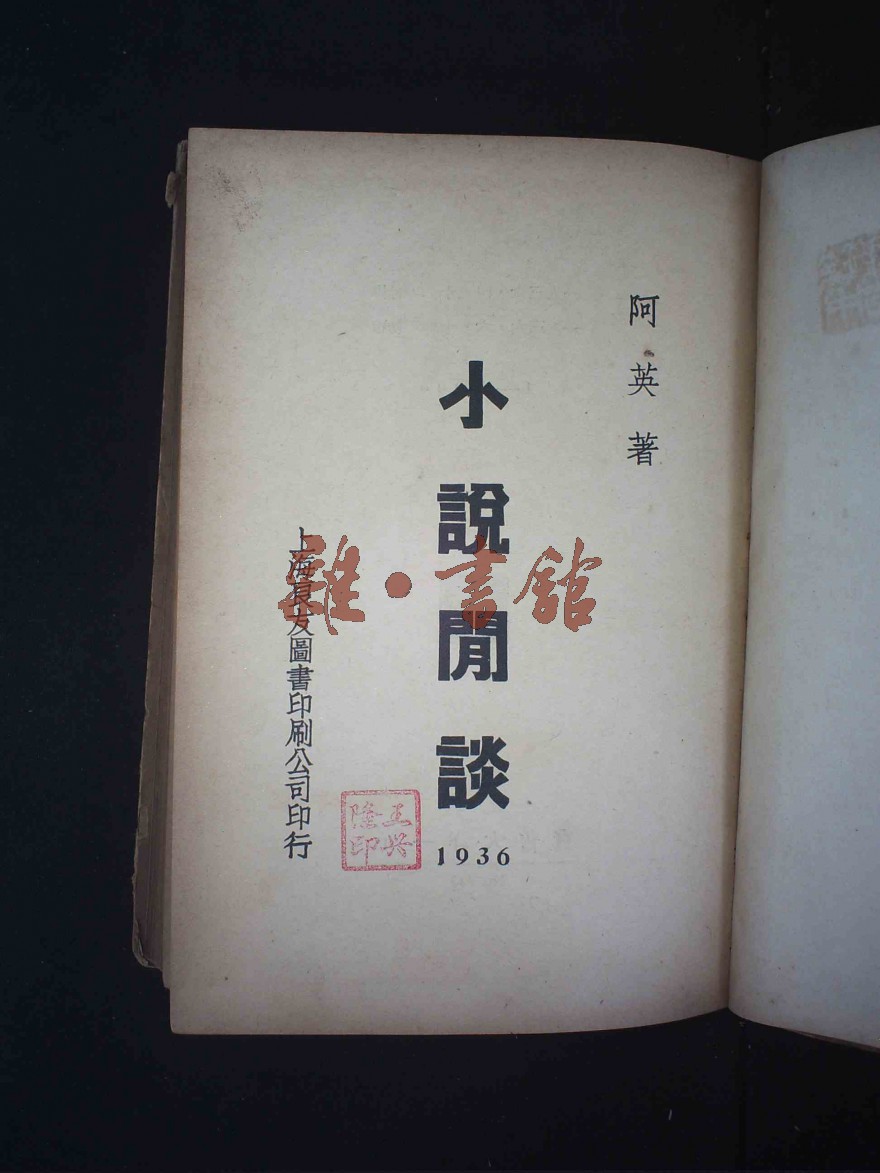 阿英著
小說閒談
1936
上海良友圖書印刷公司印行
王興隆印
雜·書館